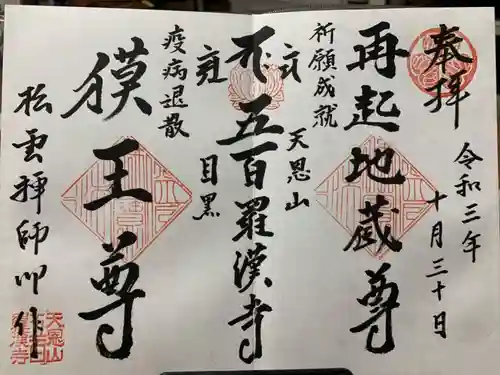 奉拝
令和三年
十月三十日
祈願成就
再起地蔵尊
天恩山
五百羅漢寺
目黒
疫病退散
獏王尊
松雲禅師御作
天恩山
五百羅漢寺